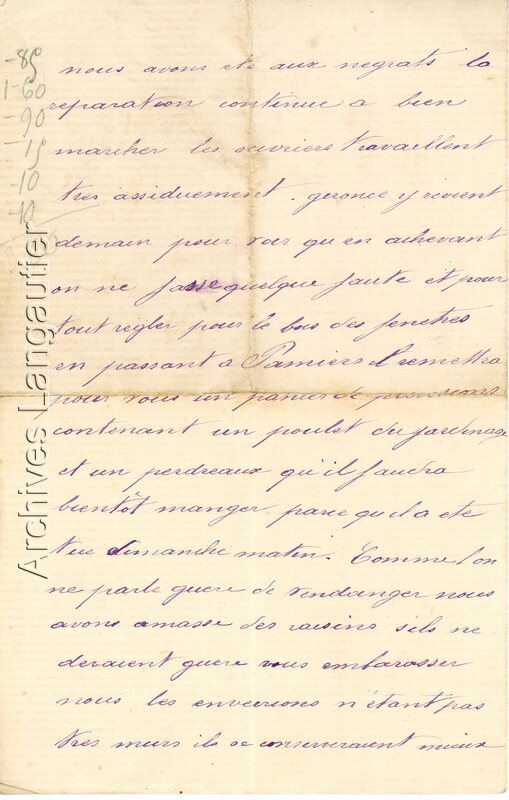 -85
1-60
-90
-15
-10
-10
nous avons eté aux negrats la
reparation continue a bien
marcher les ouvriers travaillent
tres assiduement. geronce y revient
demain pour voir qu en achevant
on ne fasse quelque faute et pour
tout regler pour le bas des fenetres
en passant a Pamiers il remettra
pour vous un panier de provisions
contenant un poulet du jardinage
et un perdreaux qu'il faudra
bientôt manger. parce qu il a ete
tue dimanche matin. Comme l on
ne parle guere de vendanger nous
avons amasse des raisins s'ils ne
devaient guere vous embarasser
nous les enverrions n'étant pas
tres murs ils se conserveraient mieux
Archives Langautier